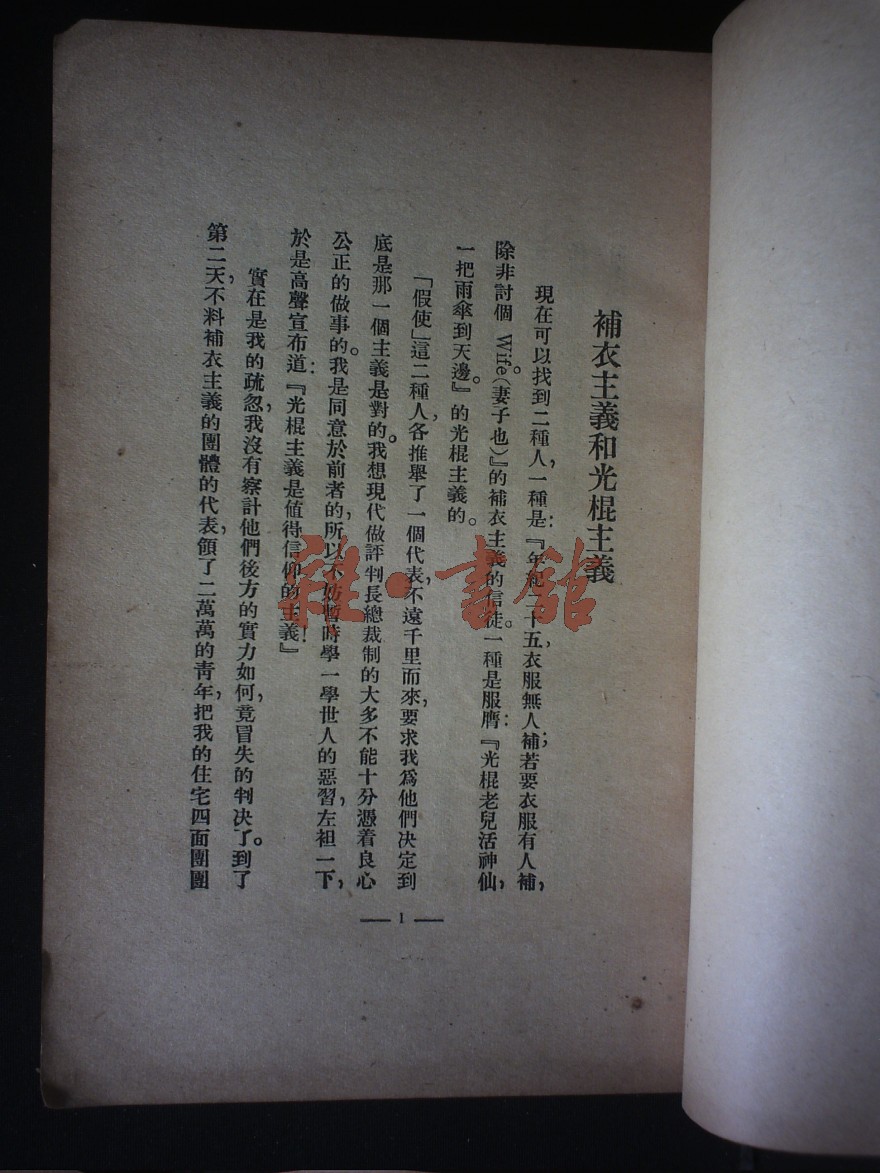 補衣主義和光棍主義
現在可以找到二種人，一種是：『年紀二十五，衣服無人補；若要衣服有人補，
除非討個 Wife。(妻子也)』的補衣主義的信徒。一種是服膺：『光棍老兒活神仙，
一把雨傘到天邊。』的光棍主義的。
「假使」這二種人，各推舉了一個代表，不遠千里而來，要求我爲他們决定到
底是那一個主義是對的。我想現代做評判長總裁制的大多不能十分憑着良心
公正的做事的。我是同意於前者的，所以不妨暫時學一學世人的惡習，左袒一下，
於是高聲宣布道：『光棍主義是值得信仰的主義！』
實在是我的疏忽，我沒有察計他們後方的實力如何，竟冒失的判决了。到了
第二天，不料補衣主義的團體的代表，領了二萬萬的青年，把我的住宅四面團團
— 1 —
雜·書館